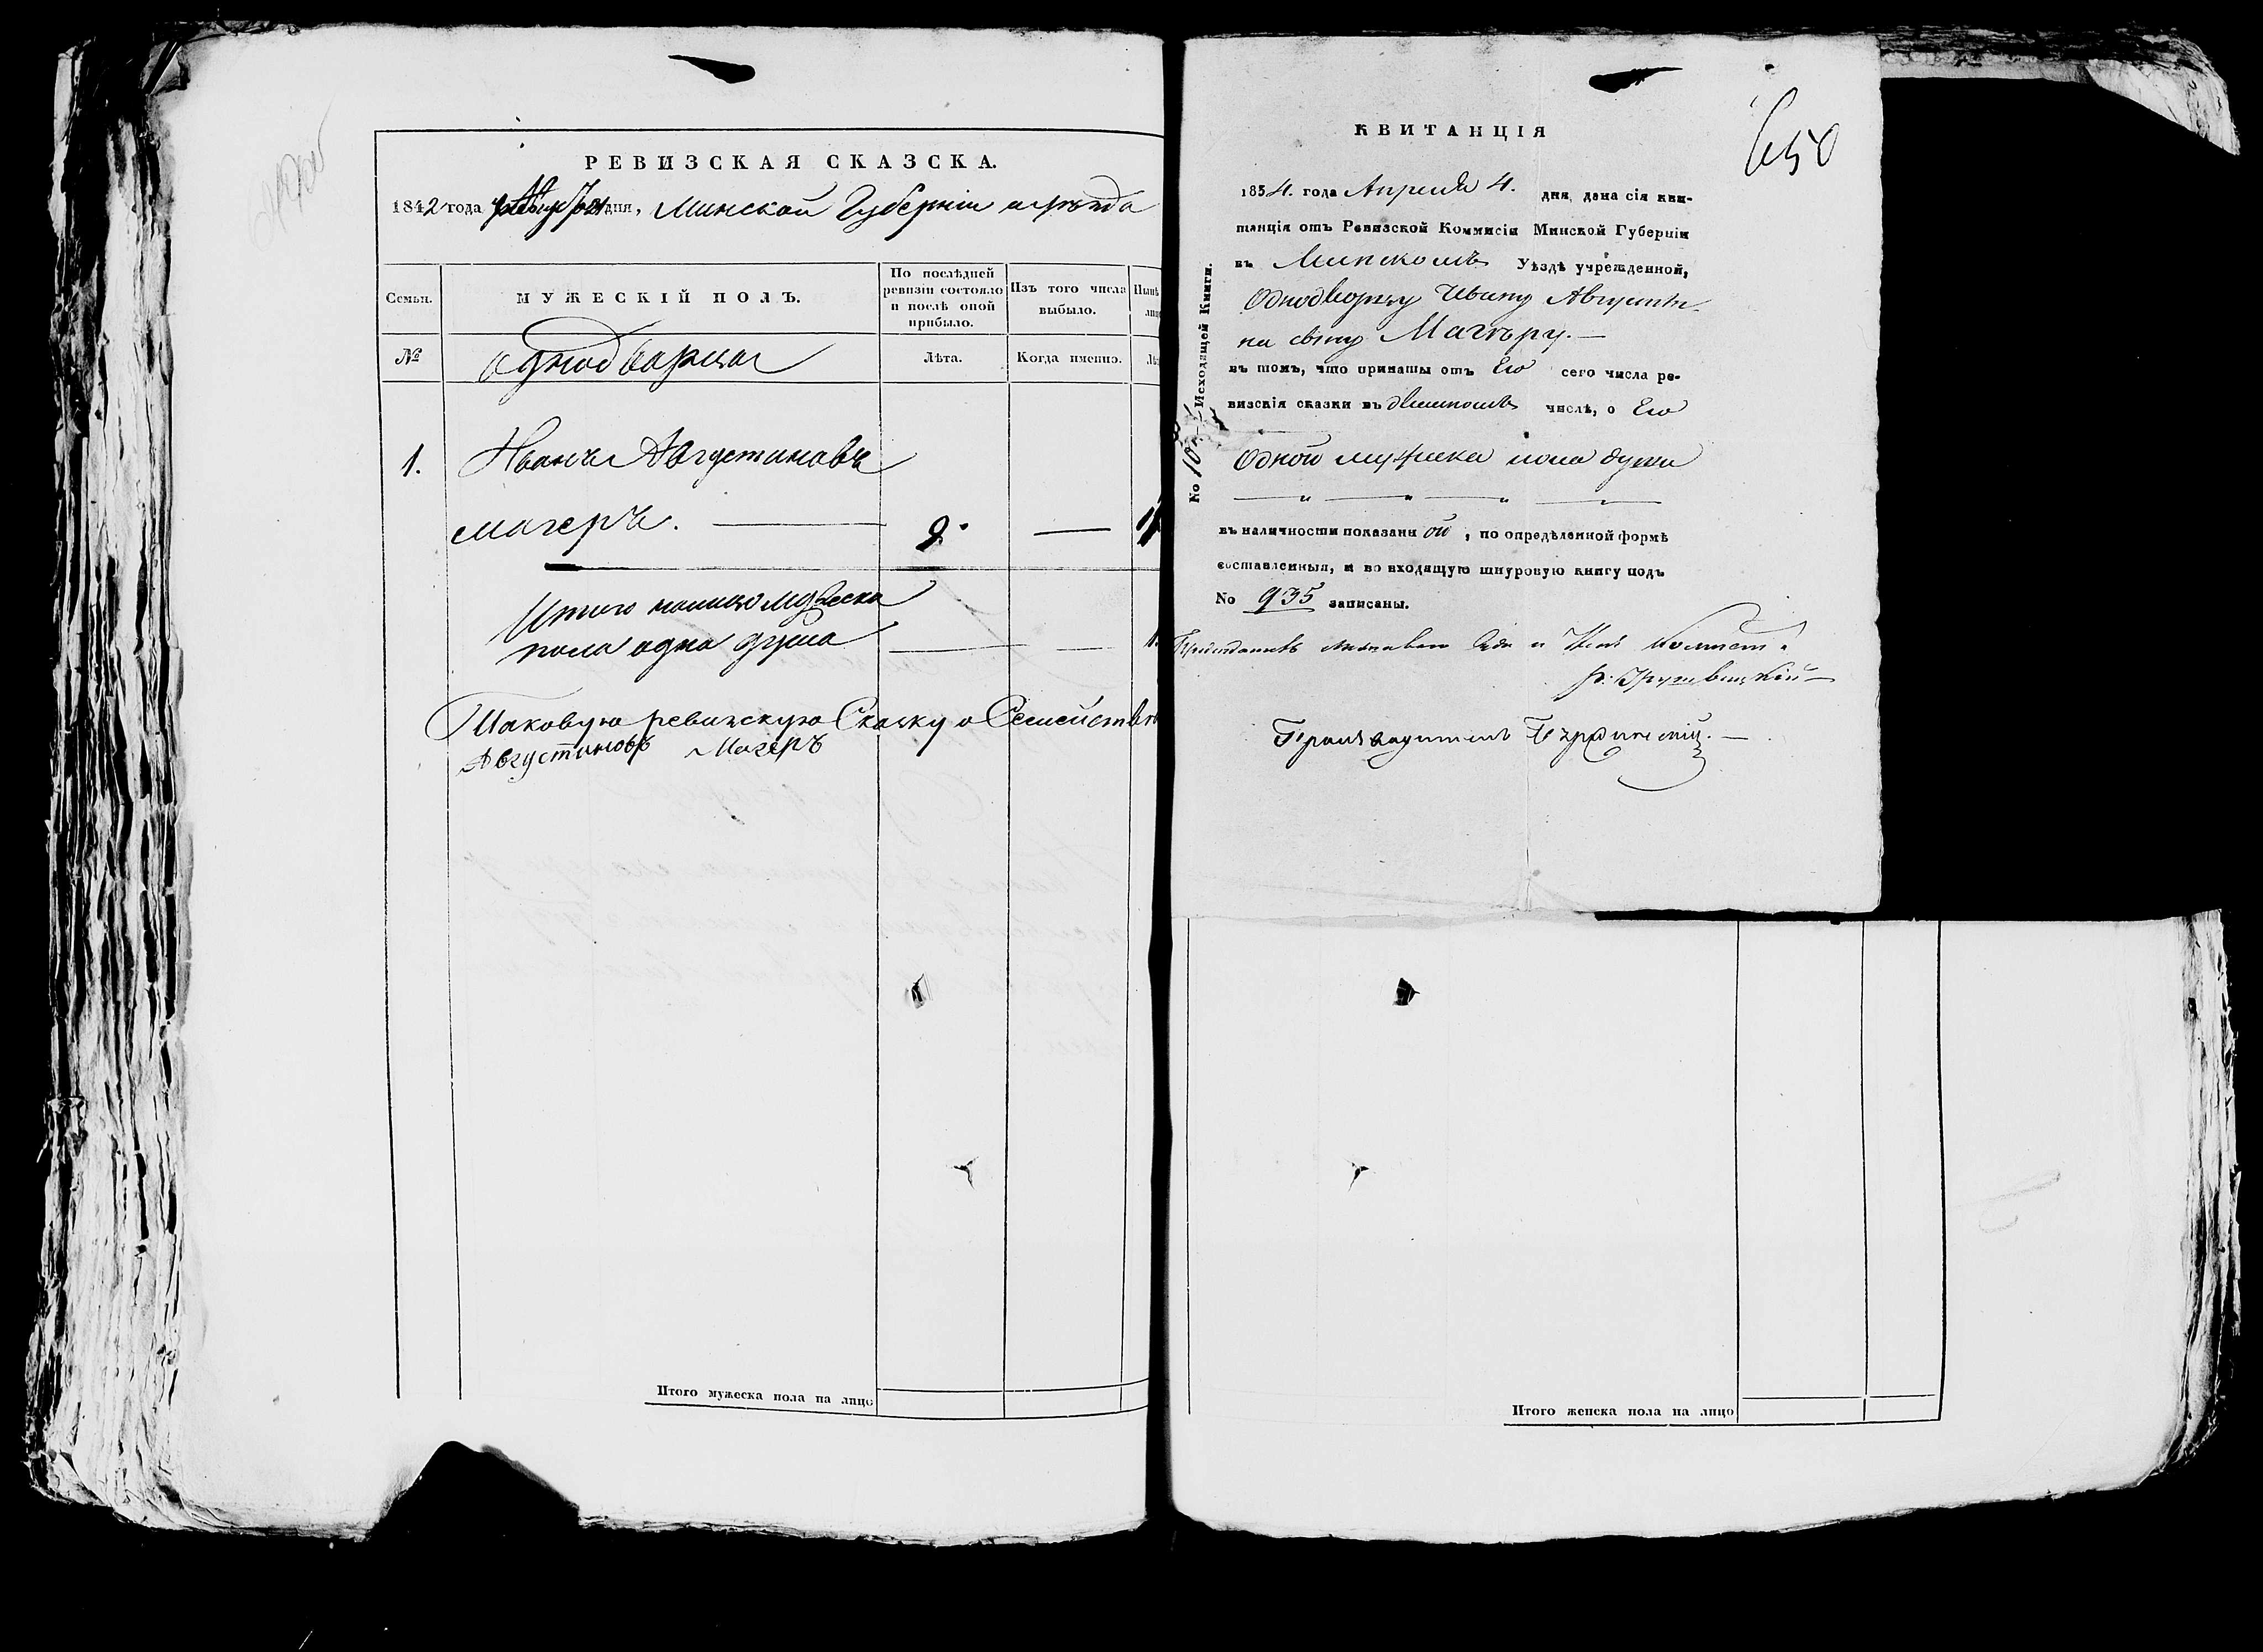 РЕВИЗСКАЯ СКАЗСКА.
1842 года дня, Минской Губерніи и уѣзда
Семьи.
МУЖЕСКІЙ ПОЛЪ.
По послѣдней ревизіи состояло и послѣ оной прибыло.
Изъ того числа выбыло.
№
однодворцы
Лѣта.
Когда именно.
1.
Иванъ Августиновъ
Магеръ.
9.
Итого налицо мужеска
пола одна душа
1.
Таковую ревизскую Сказку о Семействѣ
Августиновъ Магеръ
Итого мужеска пола на лицо
650
КВИТАНЦІЯ
1854. года Апреля 4. дня, дана сія кви-
танція отъ Ревизской Коммисіи Минской Губерніи
въ Минскомъ Уѣздѣ учрежденной,
Однодворцу Ивану Августи-
на сыну Магѣру.—
въ томъ, что приняты отъ Его сего числа ре-
визскія сказки въ числѣ, о Его
Одной мужеска пола души
въ наличности показанной, по опредѣленной формѣ
составленныя, и во входящую шнуровую книгу подъ
No 935 записаны.
No Исходящей Книги.
Производитель
Итого женска пола на лицо